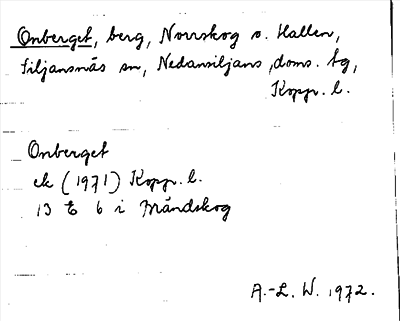 Onberget, berg, Norrskog o. Hallen,
Siljansnäs sn, Nedansiljans doms. tg,
Kopp. l.
Onberget
ek (1971) Kopp. l.
13 E 6 i Mändskog
A.-L. W. 1972.